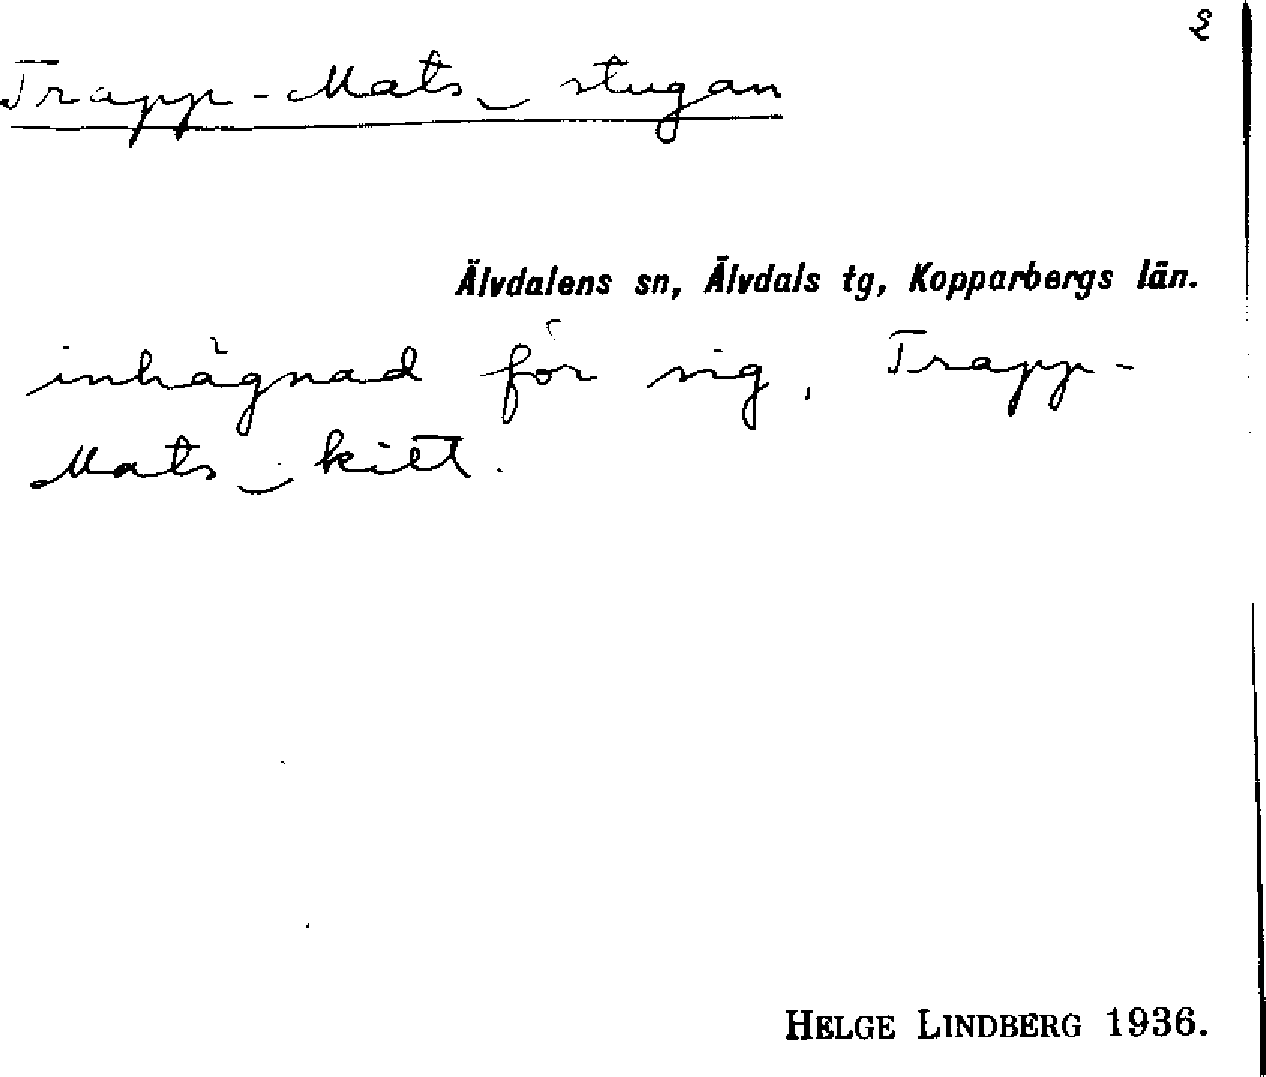 2
Trapp-Mats_stugan
Älvdalens sn, Älvdals tg, Kopparbergs län.
inhägnad för sig, Trapp-
Mats_kilt.
HELGE LINDBERG 1936.